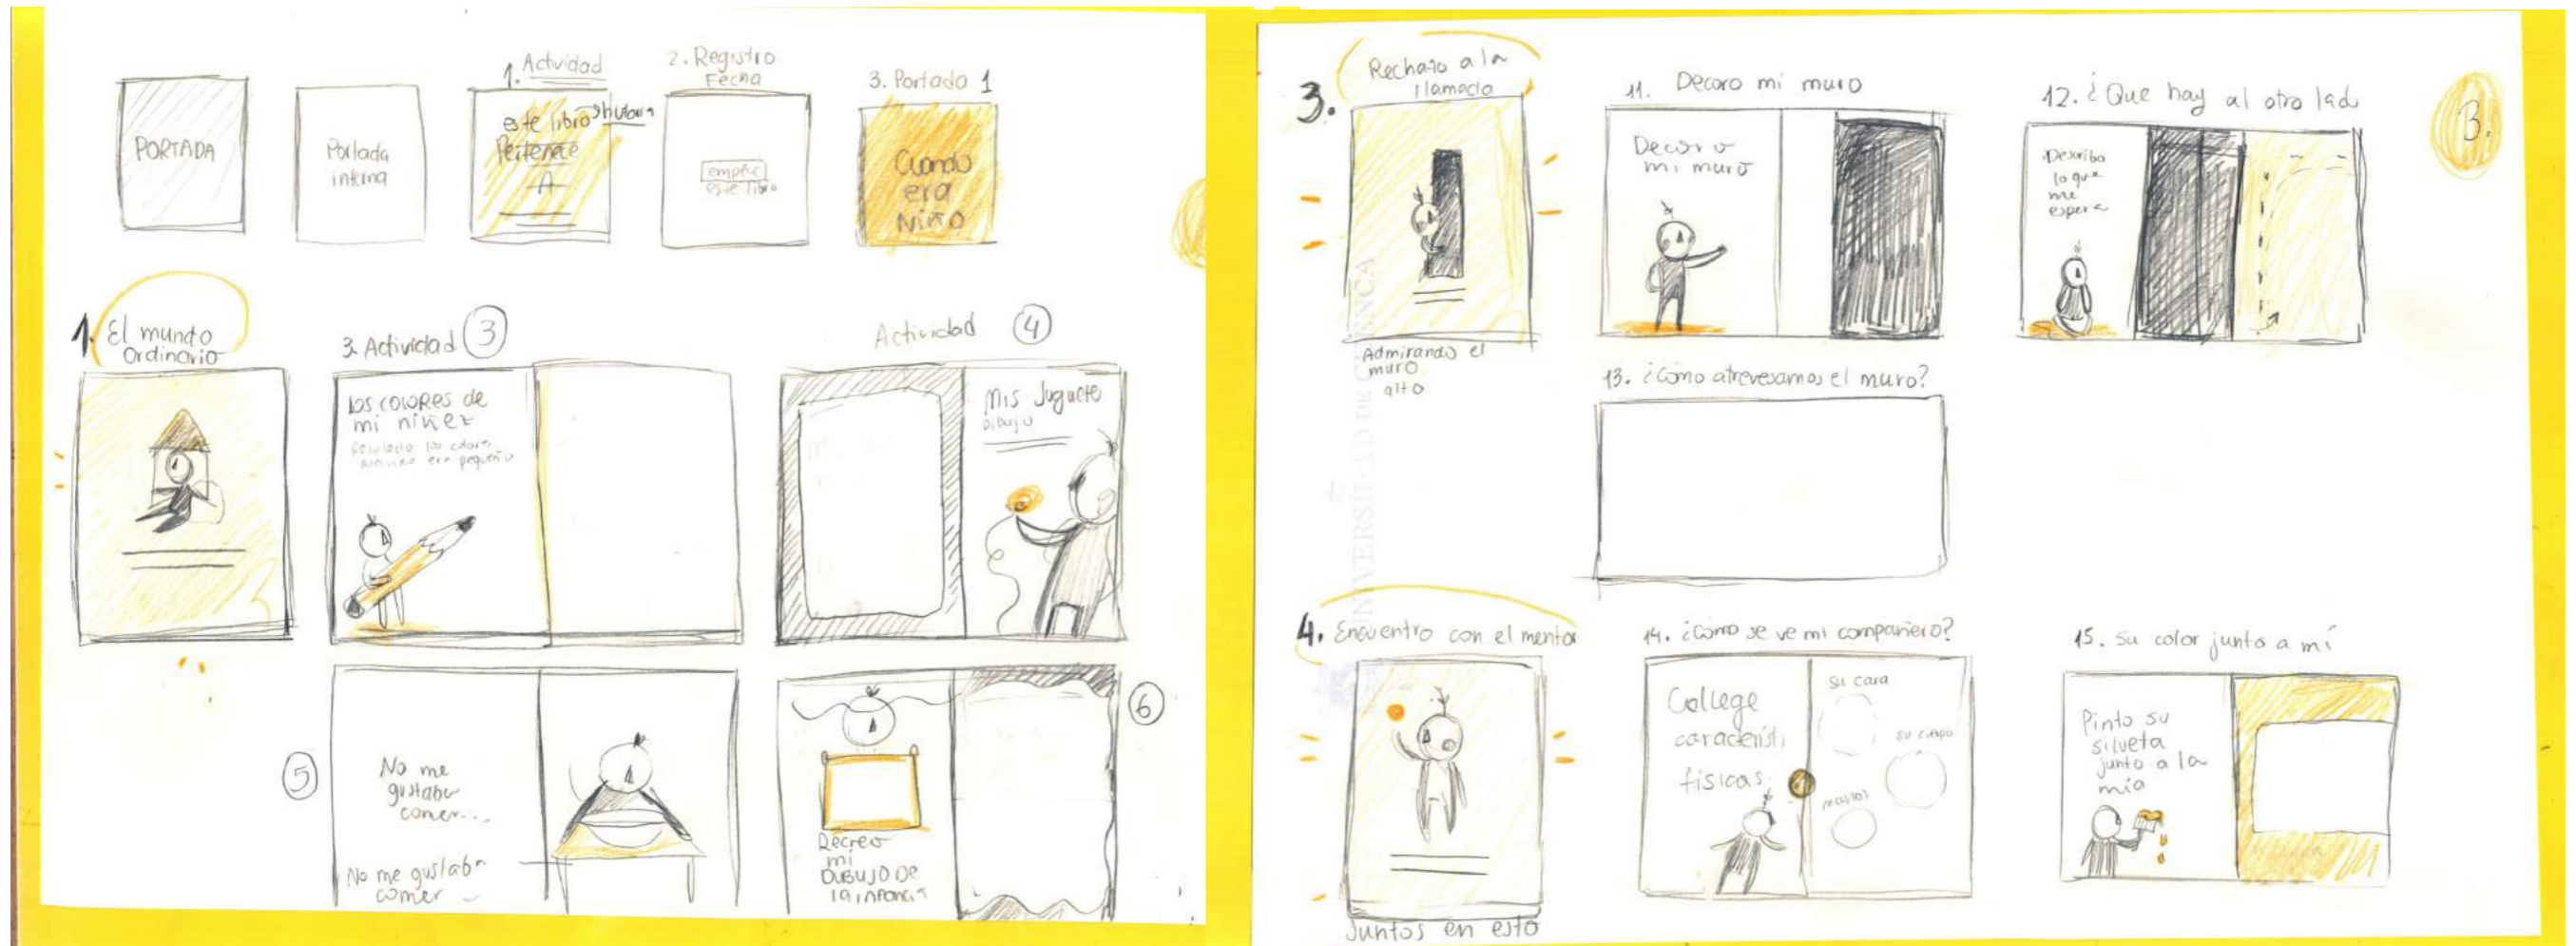 PORTADA
Portada
interna
1. Actividad
este libro
Pertenece
A
2. Registro
Fecha
empecé
este libro
3. Portada 1
Cuando
era
Niño
1. El mundo
Ordinario
3. Actividad 3
los colores de
mi niñez
Actividad 4
Mis Juguete
Dibujo
5
No me
gustaba
comer...
No me gustaba
comer
6
Recreo
mi
DIBUJO DE
la infancia
3. Rechazo a la
llamada
Admirando el
muro
alto
11. Decoro mi muro
Decoro
mi muro
12. ¿Que hay al otro lado
Describo
lo que
me
espera
3.
13. ¿Cómo atravesamos el muro?
UNIVERSIDAD DE CUENCA
4. Encuentro con el mentor
Juntos en esto
14. ¿Cómo se ve mi compañero?
Collage
caracteristi
fisicas.
su cara
su cuerpo
manos
15. Su color junto a mí
Pinto su
silueta
junto a la
mía